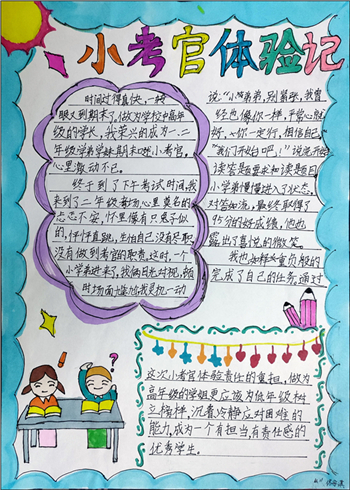 小考官体验记
时间过得真快，一转
眼又到期末了，做为学校中高年
级的学长，我荣兴的成为一、二
年级学弟学妹期末口试小考官，
心里激动不已。
终于到了下午考试时间，我
来到了二年级考场心里莫名的
忐忑不安，怀里像有只兔子似
的，怦怦直跳，生怕自己没有尽职
没有做到考官的职责，这时，一个
小学弟进来了，我俩目光对视，顿
时场面尴尬我灵机一动
说："小学弟弟，别紧张，我曾
经也像你一样，平常心就
好，你一定行，相信自己，
我们开始吧！"说完开始
读答题要求和读题目
小学弟慢慢进入了状态，
对答如流，最终取得了
95分的好成绩，他也
露出了喜悦的微笑。
我也怎样认真负责的
完成了自己的任务，通过
这次小考官体验责任的重担，做为
高年级的学姐更应该为低年级树
立榜样，沉着冷静应对困难的
能力，成为一个有担当，有责任感的
优秀学生。